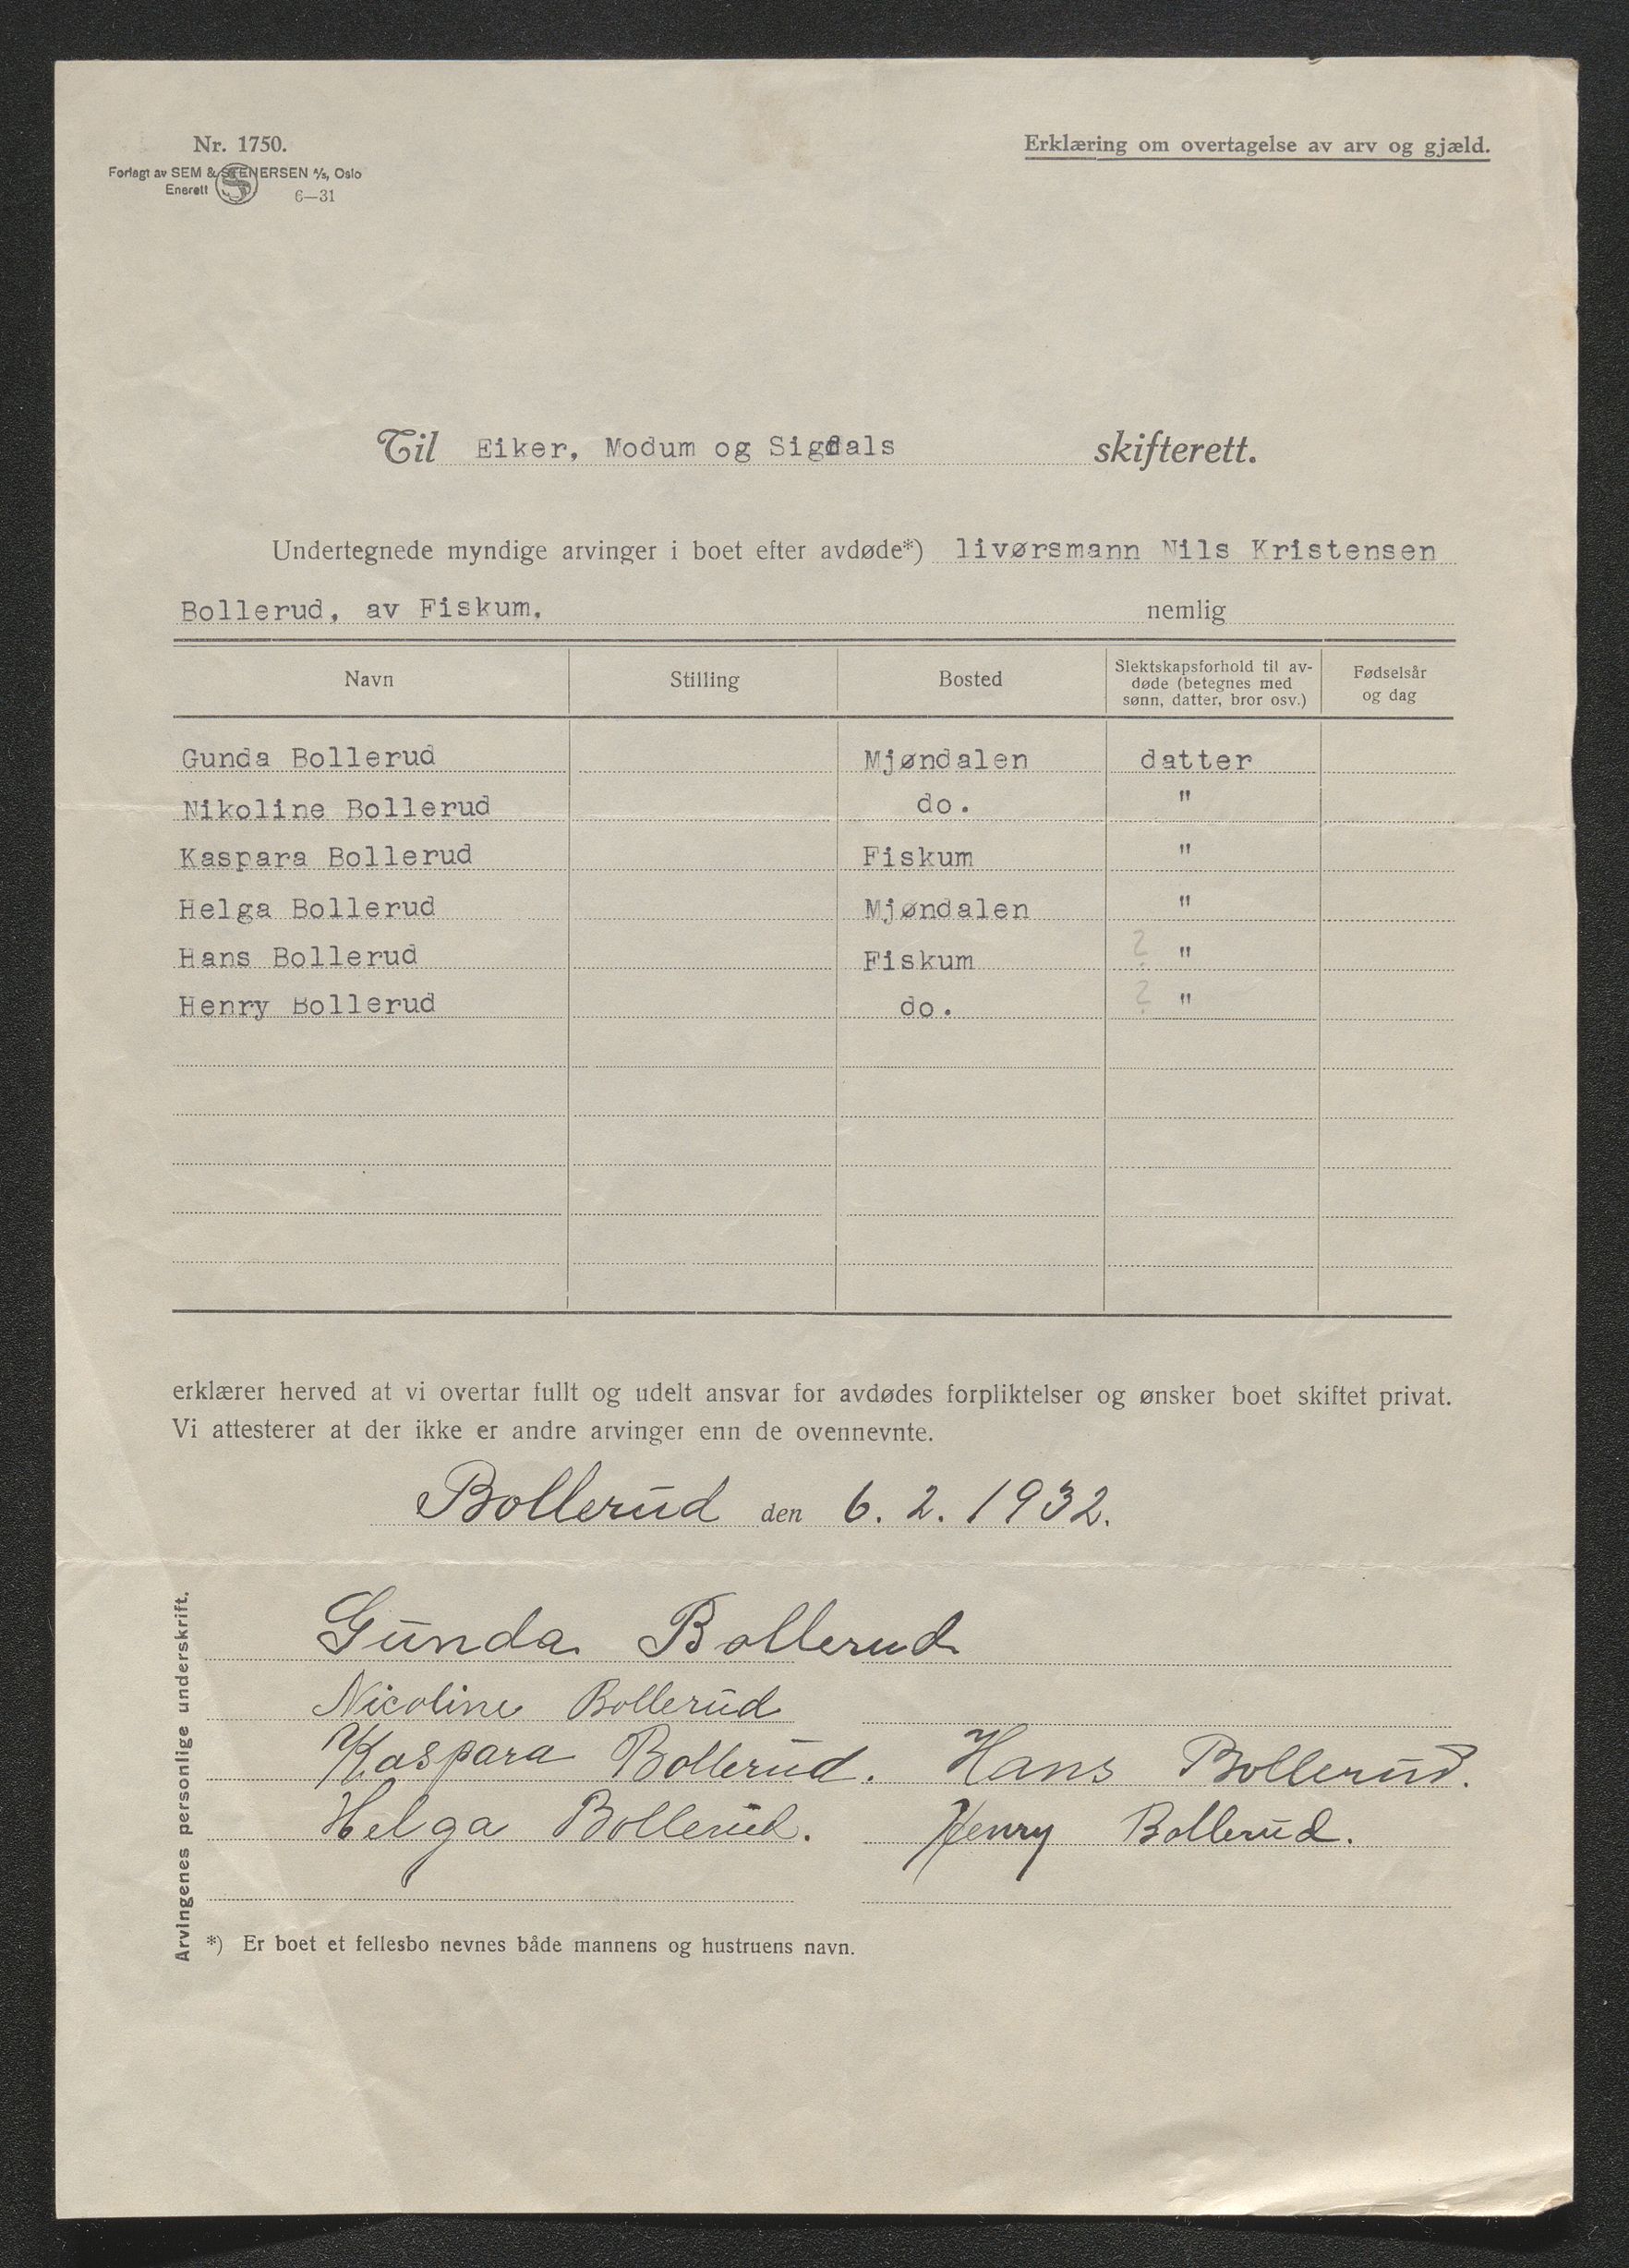 Nr. 1750.
Forlagt av SEM & STENERSEN A/S, Oslo
Enerett 6—31
Erklæring om overtagelse av arv og gjæld.
Til Eiker, Modum og Sigdals skifterett.
Undertegnede myndige arvinger i boet efter avdøde*) livørsmann Nils Kristensen
Bollerud, av Fiskum, nemlig
Navn Stilling Bosted Slektskapsforhold til av-
døde (betegnes med
sønn, datter, bror osv.) Fødselsår
og dag
Gunda Bollerud Mjøndalen datter
Nikoline Bollerud do. "
Kaspara Bollerud Fiskum "
Helga Bollerud Mjøndalen "
Hans Bollerud Fiskum ? "
Henry Bollerud do. ? "
erklærer herved at vi overtar fullt og udelt ansvar for avdødes forpliktelser og ønsker boet skiftet privat.
Vi attesterer at der ikke er andre arvinger enn de ovennevnte.
Bollerud den 6. 2. 1932.
Arvingenes personlige underskrift.
Gunda Bollerud
Nicoline Bollerud
Kaspara Bollerud. Hans Bollerud.
Helga Bollerud. Henry Bollerud.
*) Er boet et fellesbo nevnes både mannens og hustruens navn.